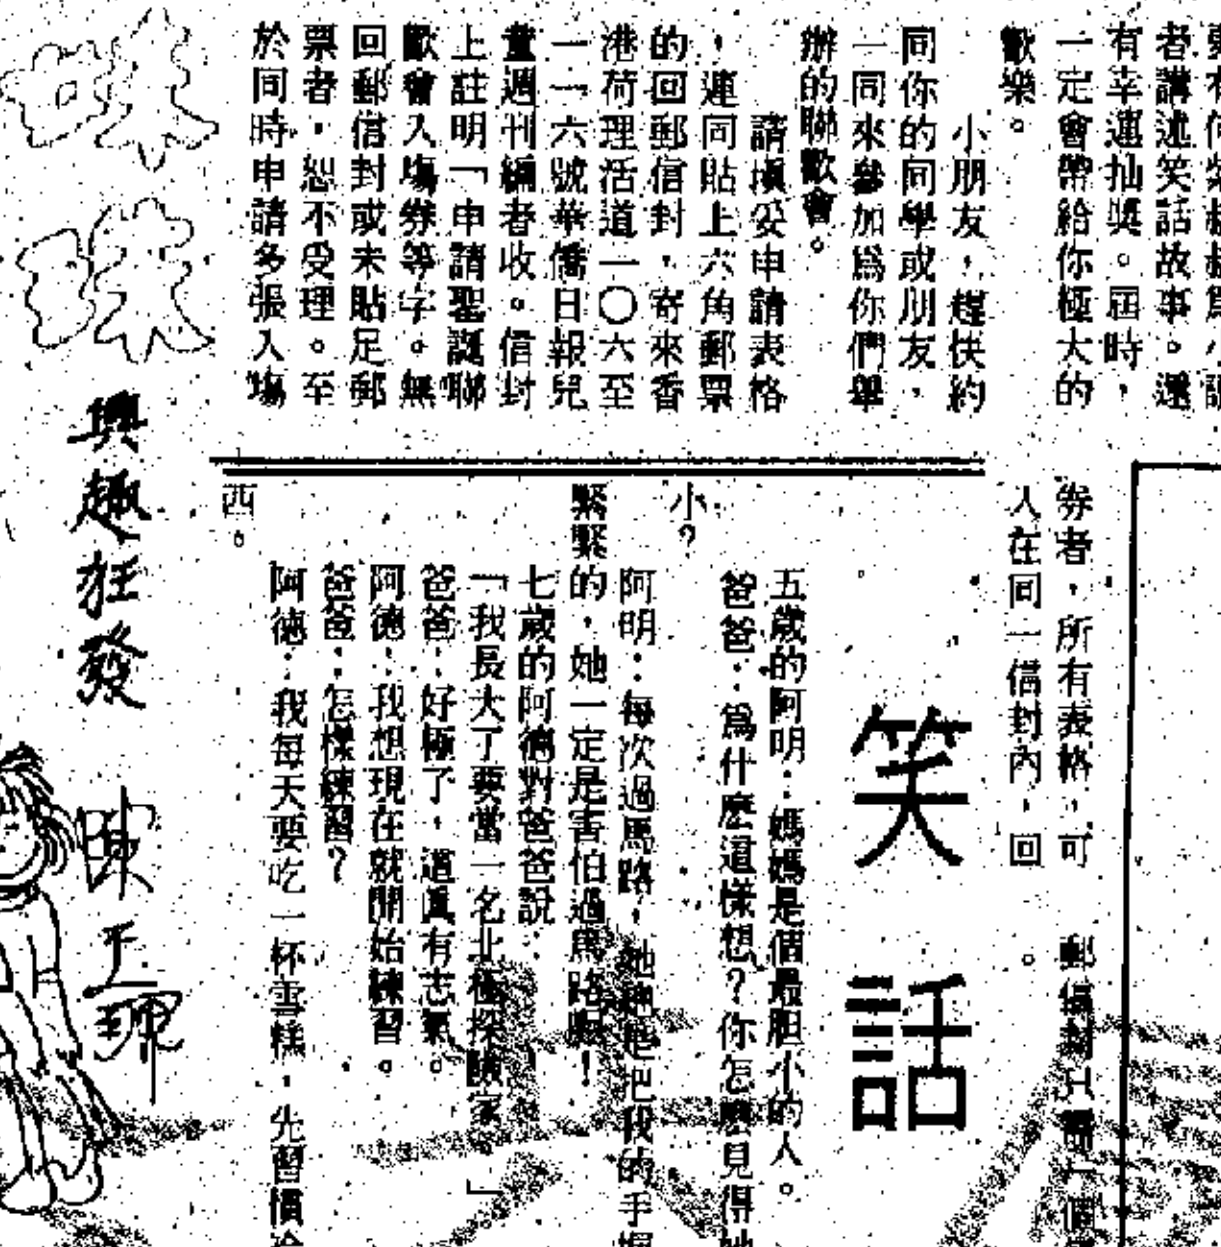 者講述笑話故事。還
有幸運抽獎。屆時，
一定會帶給你極大的
歡樂。
小朋友，趕快約
同你的同學或朋友，
一同來參加為你們舉
辦的聯歡會。
請填妥申請表格
，連同貼上六角郵票
的回郵信封，寄來香
港荷理活道一〇六至
一一六號華僑日報兒
童週刊編者收。信封
上註明「申請聖誕聯
歡會入場券等字。無
回郵信封或未貼足郵
票者，恕不受理。至
於同時申請多張入場
券者，所有表格，可
人在同一信封內，回
郵信封只需一個
。
笑話
五歲的阿明：媽媽是個最胆小的人。
爸爸：為什麼這樣想？你怎麼見得她
小？
阿明：每次過馬路，她總是把我的手握
緊緊的，她一定是害怕過馬路呢！
七歲的阿德對爸爸說：
「我長大了要當一名北極探險家。」
爸爸：好極了，這真有志氣。
阿德：我想現在就開始練習。
爸爸：怎樣練習？
阿德：我每天要吃一杯雪糕，先習慣冷
西。
興趣狂發